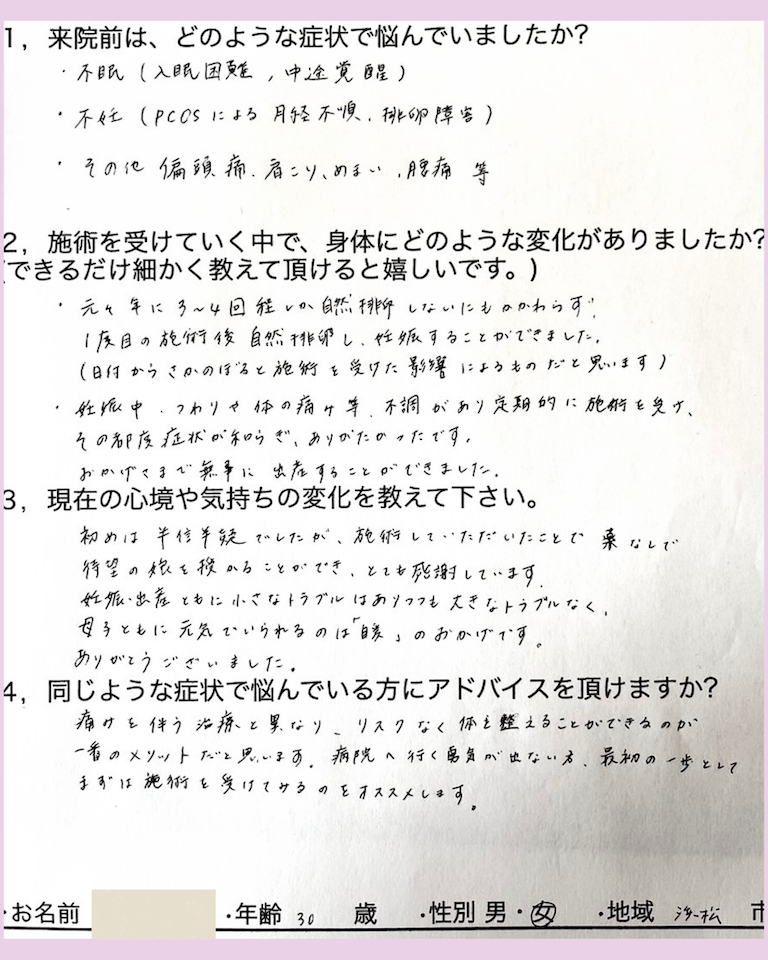 1，来院前は、どのような症状で悩んでいましたか?
・不眠（入眠困難，中途覚醒）
・不妊（PCOSによる月経不順、排卵障害）
・その他 偏頭痛、肩こり、めまい、腰痛 等
2，施術を受けていく中で、身体にどのような変化がありましたか?
(できるだけ細かく教えて頂けると嬉しいです。)
・元々年に3~4回程しか自然排卵しないにもかかわらず、
1度目の施術後自然排卵し、妊娠することができました。
(日付からさかのぼると施術を受けた影響によるものだと思います)
・妊娠中、つわりや体の痛み等、不調があり定期的に施術を受け、
その都度症状が和らぎ、ありがたかったです。
おかげさまで無事に出産することができました。
3，現在の心境や気持ちの変化を教えて下さい。
初めは半信半疑でしたが、施術していただいたことで薬なしで
待望の娘を授かることができ、とても感謝しています。
妊娠・出産ともに小さなトラブルはありつつも大きなトラブルなく、
母子ともに元気でいられるのは「自癒」のおかげです。
ありがとうございました。
4，同じような症状で悩んでいる方にアドバイスを頂けますか?
痛みを伴う治療と異なり、リスクなく体を整えることができるのが
一番のメリットだと思います。病院へ行く勇気が出ない方、最初の一歩として
まずは施術を受けてみるのをオススメします。
・お名前 ・年齢 30 歳 ・性別 男・女 ・地域 浜松 市